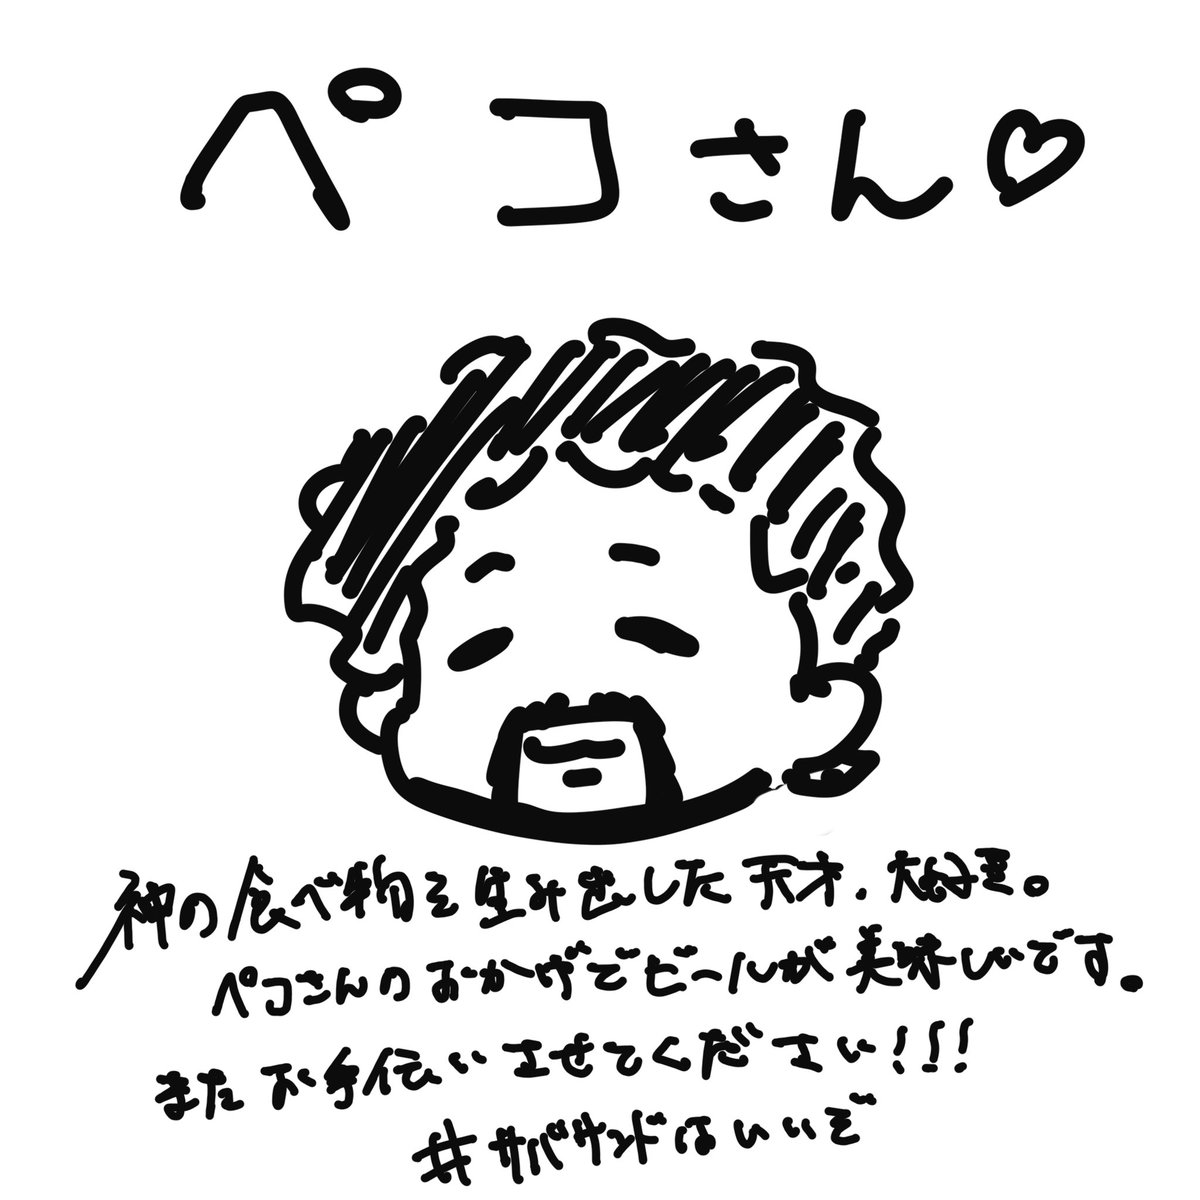 ペコさん♡
神の食べ物を生み出した天才、大好き。
ペコさんのおかげでビールが美味しいです。
またお手伝いさせてください!!!
#サバサンドはいいぞ